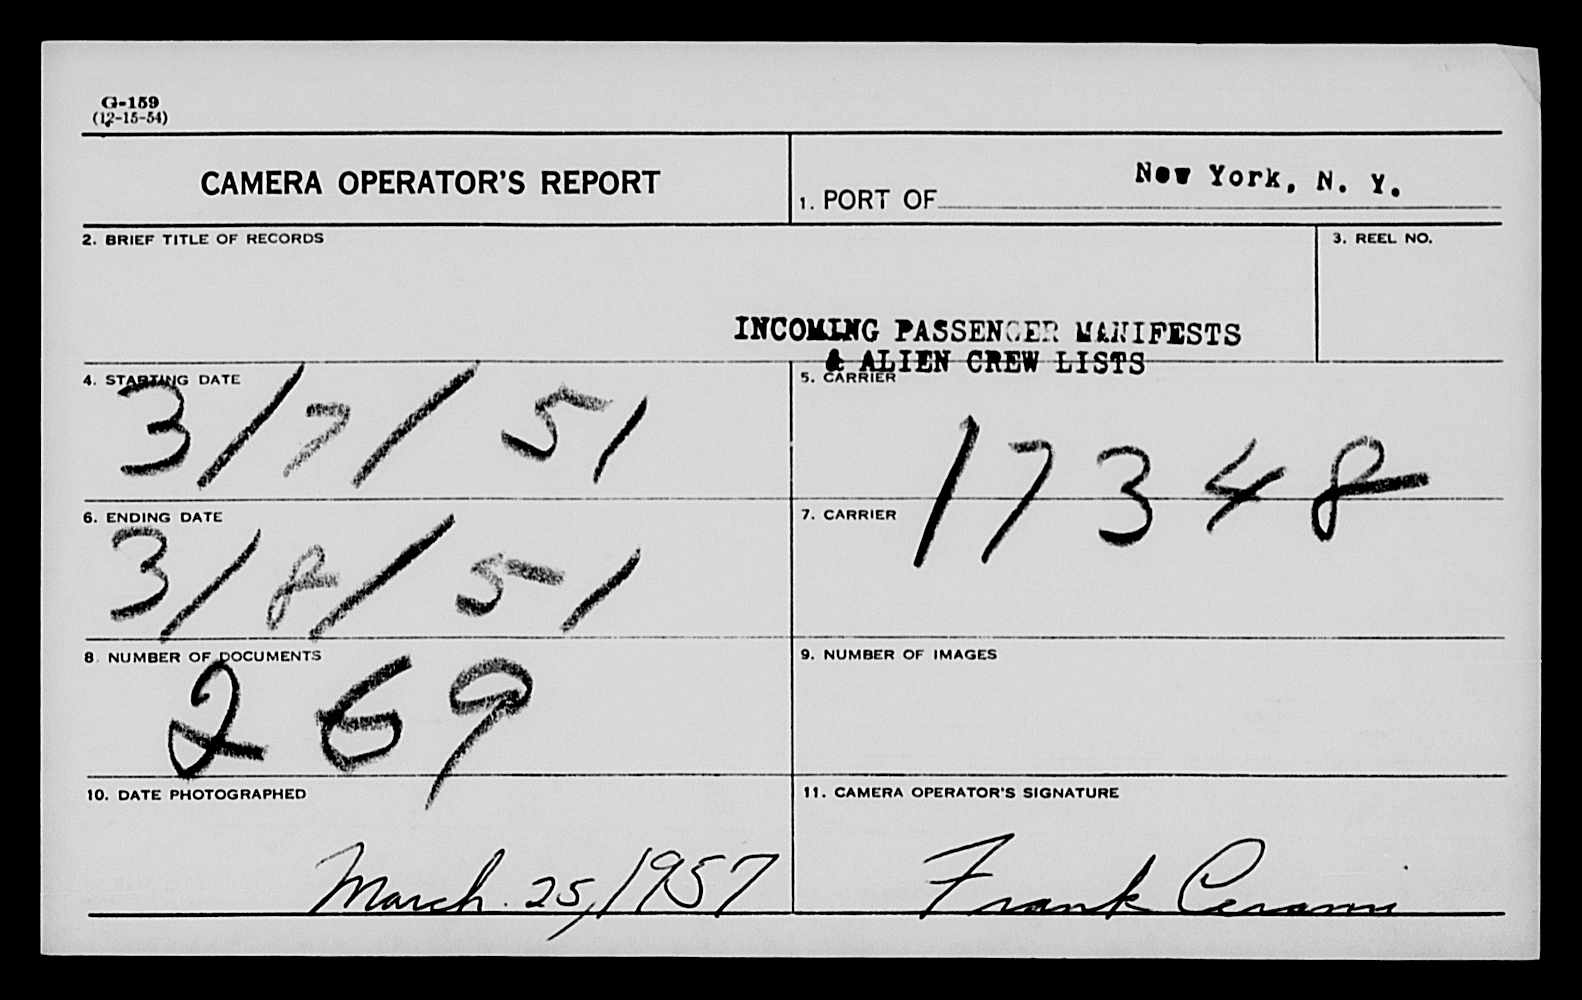 G-159
(12-15-54)
CAMERA OPERATOR'S REPORT
1. PORT OF New York, N. Y.
2. BRIEF TITLE OF RECORDS
3. REEL NO.
INCOMING PASSENGER MANIFESTS
& ALIEN CREW LISTS
4. STARTING DATE
3/7/51
5. CARRIER
17348
6. ENDING DATE
3/8/51
7. CARRIER
8. NUMBER OF DOCUMENTS
269
9. NUMBER OF IMAGES
10. DATE PHOTOGRAPHED
March. 25, 1957
11. CAMERA OPERATOR'S SIGNATURE
Frank Cerami